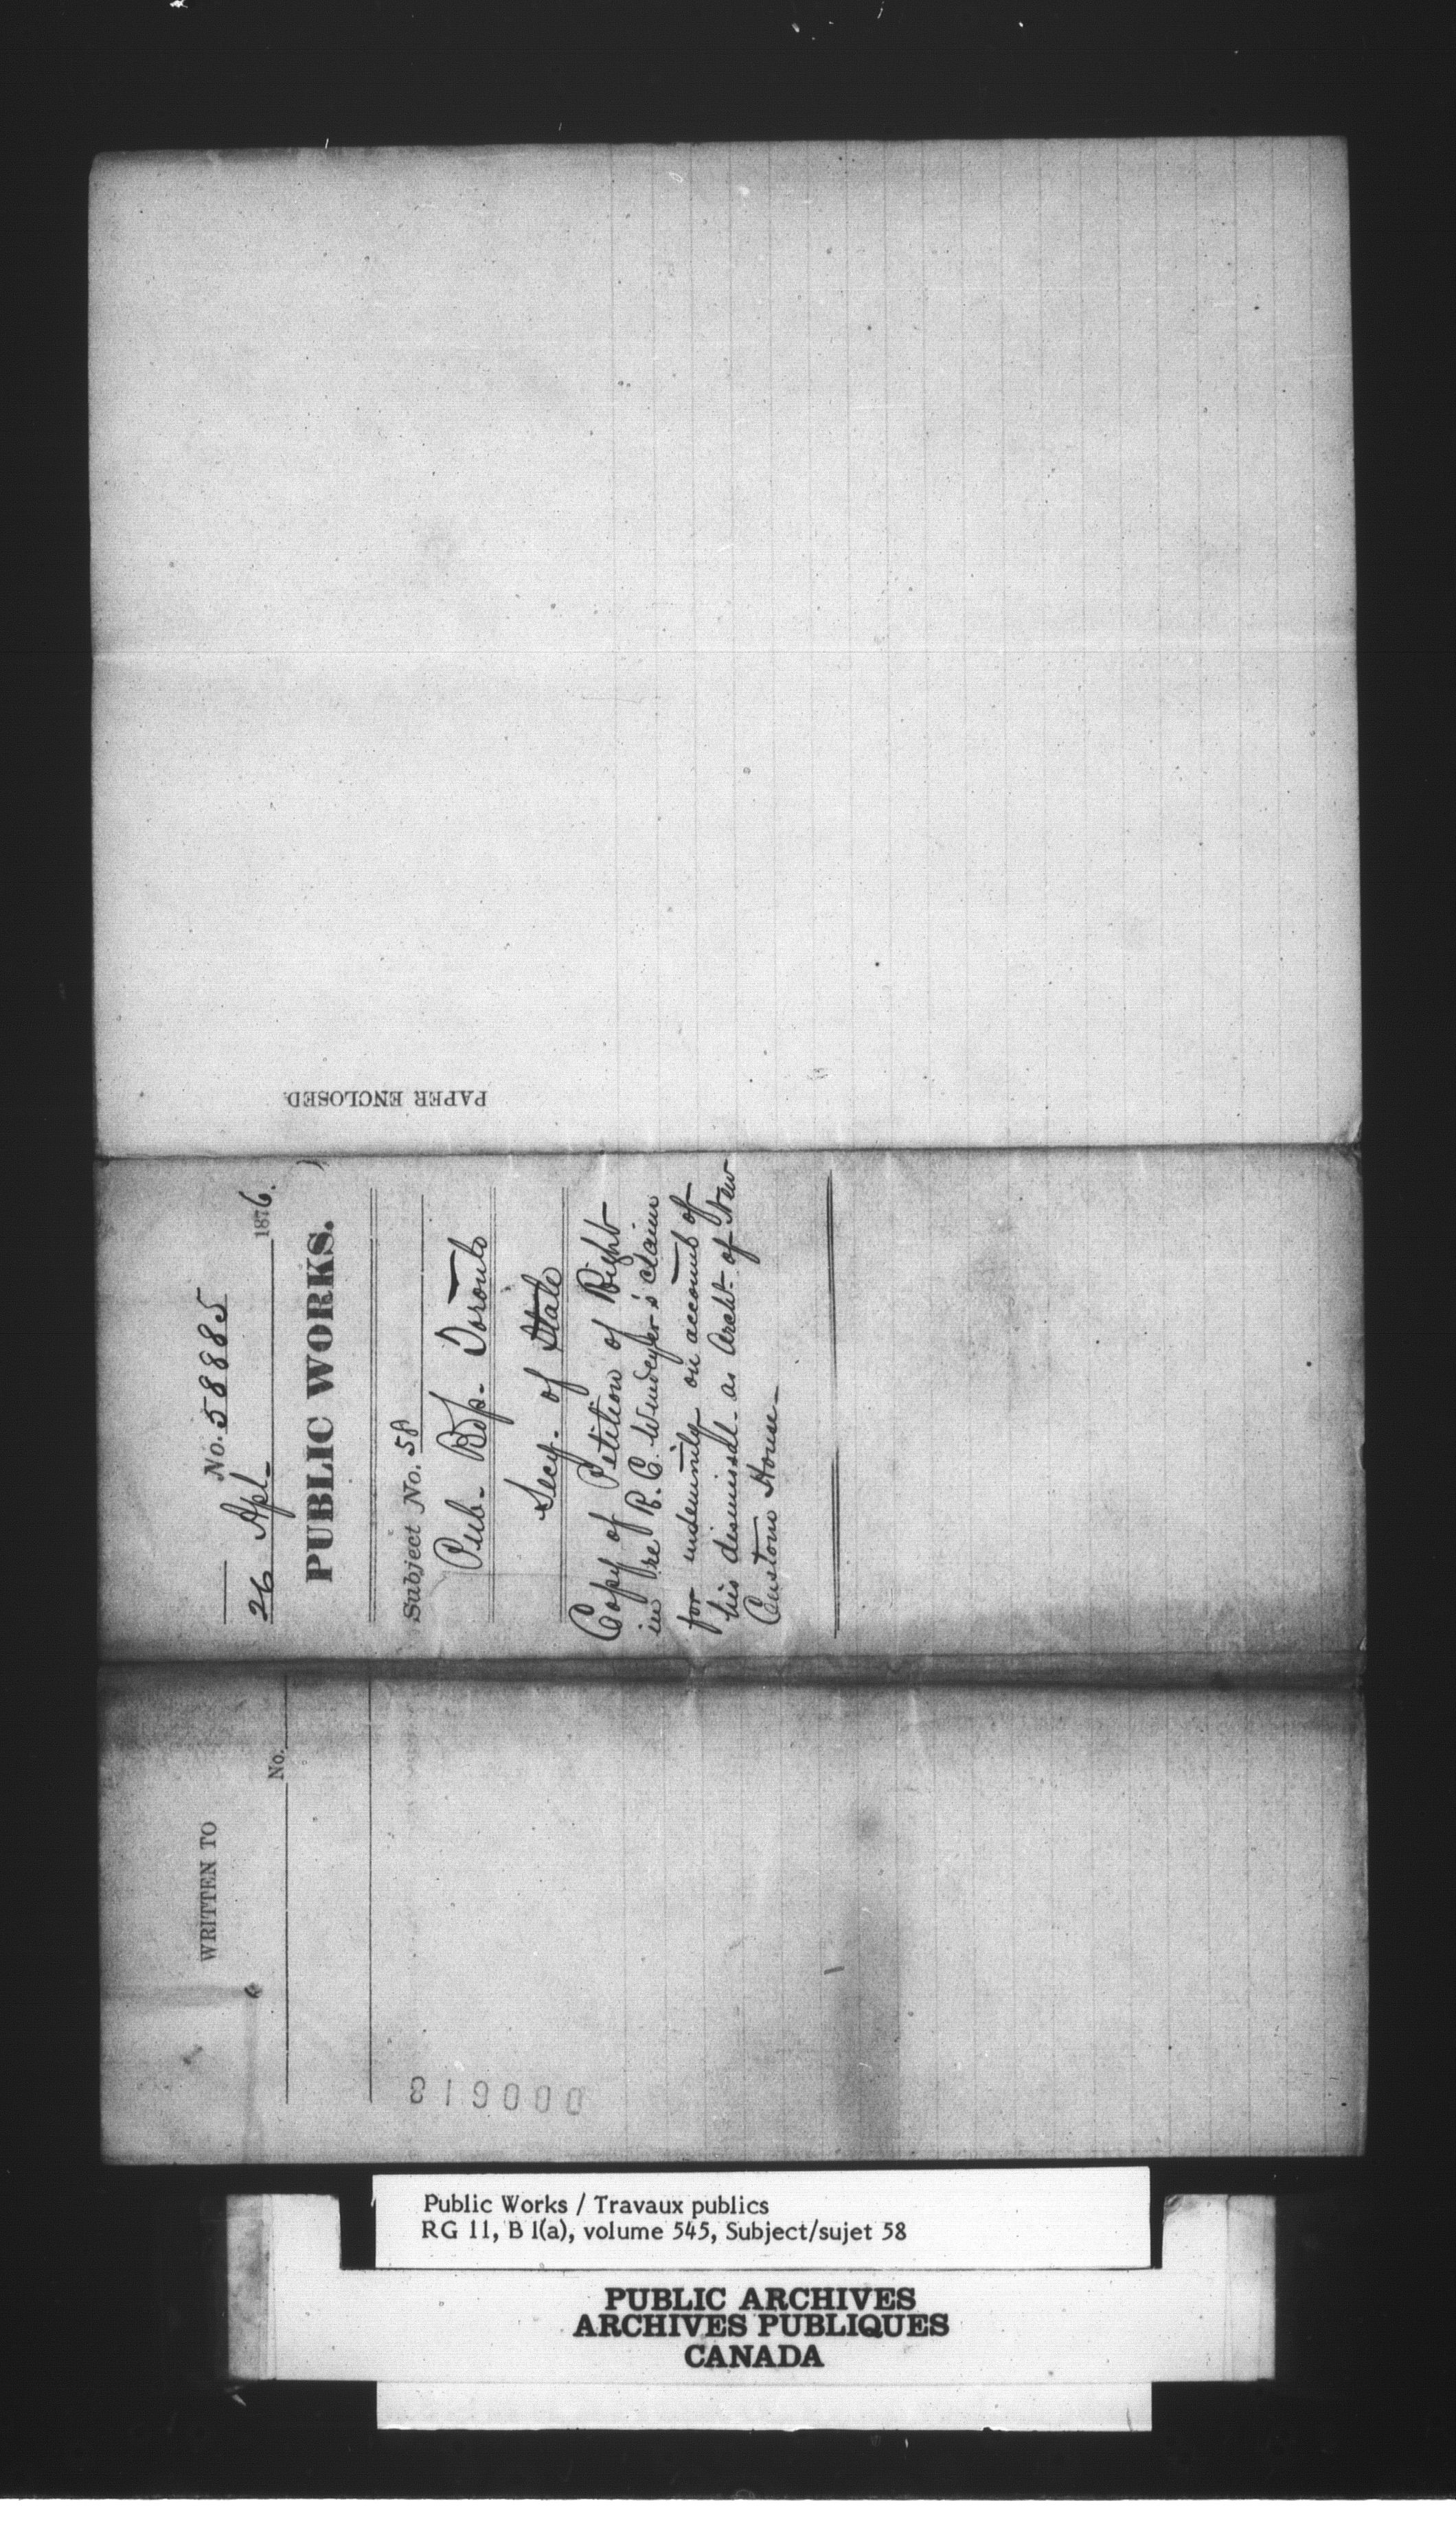 PAPER ENCLOSED.
No. 58885
26 Apl_ 1876.
PUBLIC WORKS.
Subject No. 58
Pub. Bdgs. Toronto
Secy. of State
Copy of Petition of Right
in re R. C. Windeyer's claim
for indemnity on account of
his dismissal as Archt. of New
Custom House_
WRITTEN TO
No.
000618
Public Works / Travaux publics
RG 11, B 1(a), volume 545, Subject/sujet 58
PUBLIC ARCHIVES
ARCHIVES PUBLIQUES
CANADA